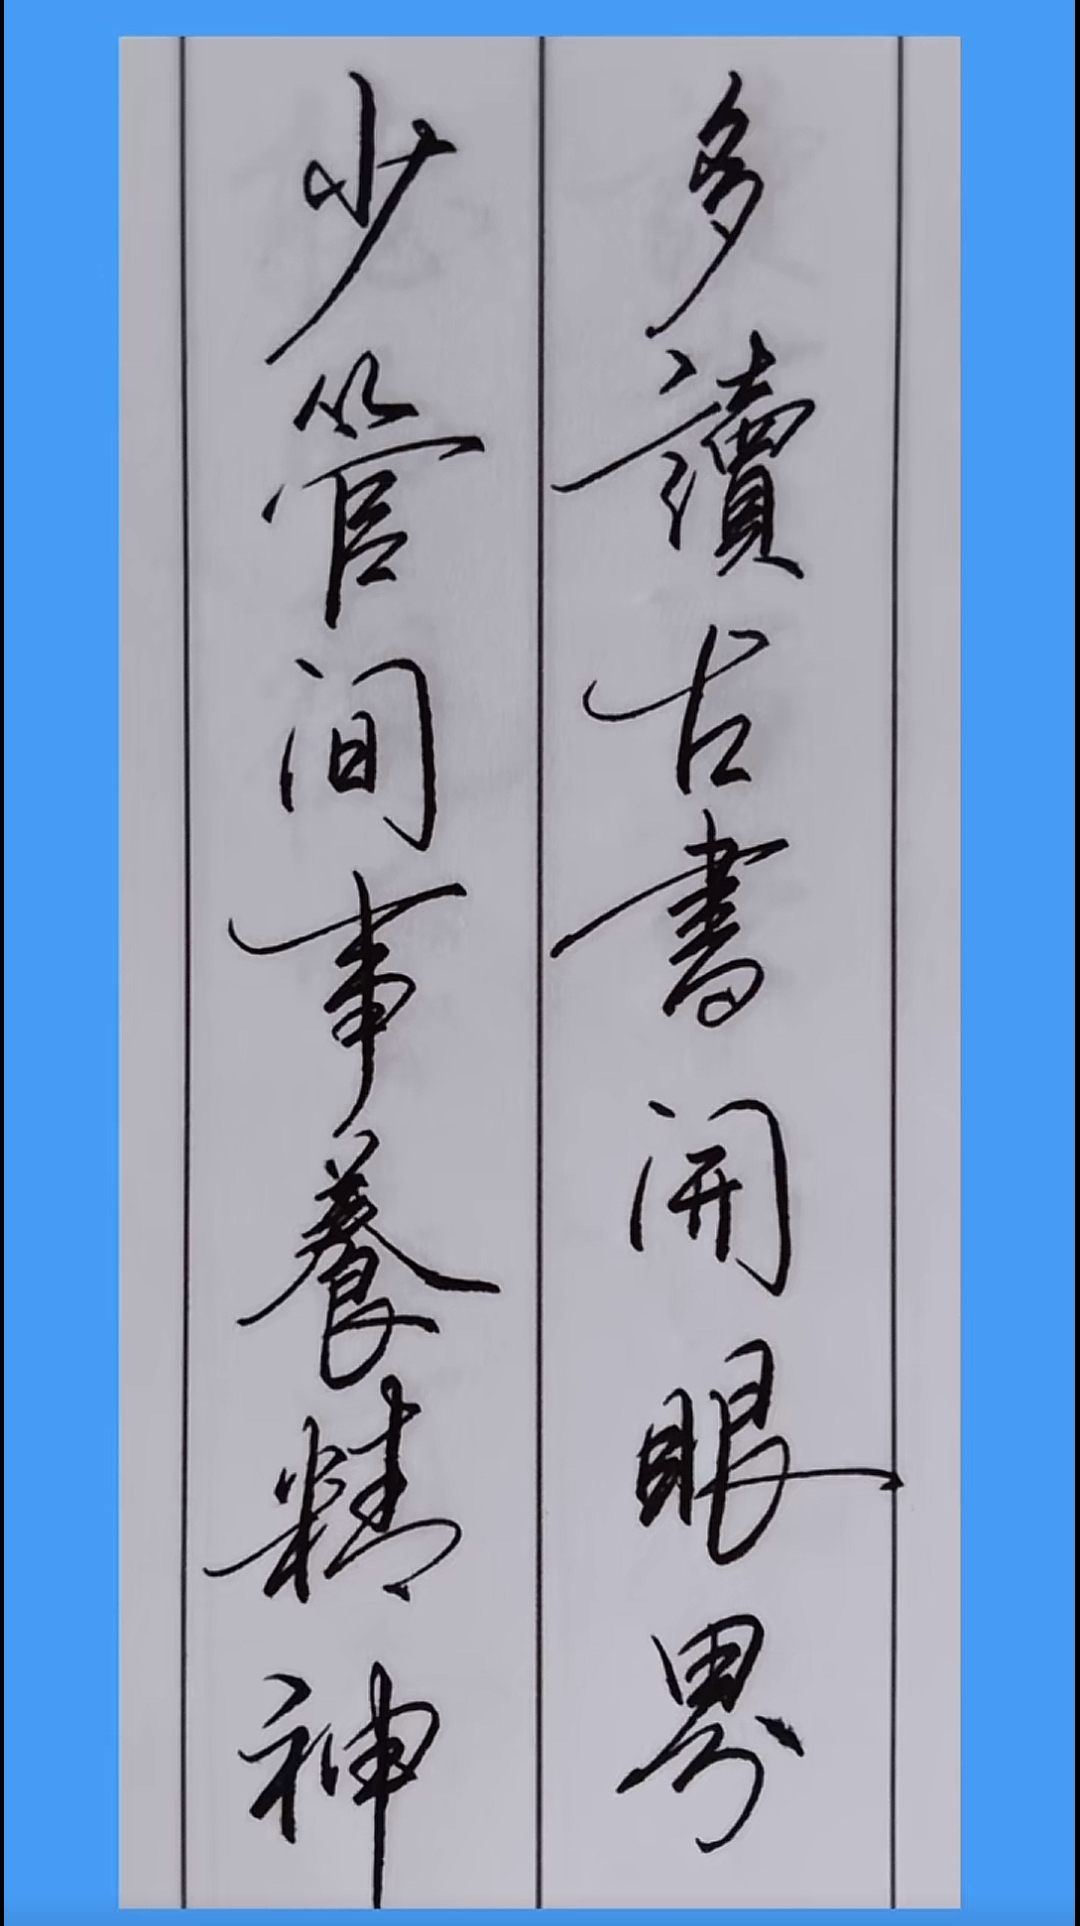 多讀古書開眼界
少管间事養精神